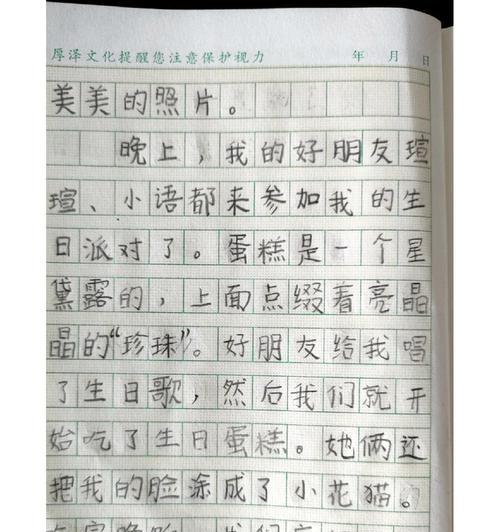 厚泽文化提醒您注意保护视力 年 月 日
美美的照片。
晚上，我的好朋友瑄
瑄、小语都来参加我的生
日派对了。蛋糕是一个星
黛露的，上面点缀着亮晶
晶的“珍珠”。好朋友给我唱
了生日歌，然后我们就开
始吃了生日蛋糕。她俩还
把我的脸涂成了小花猫。